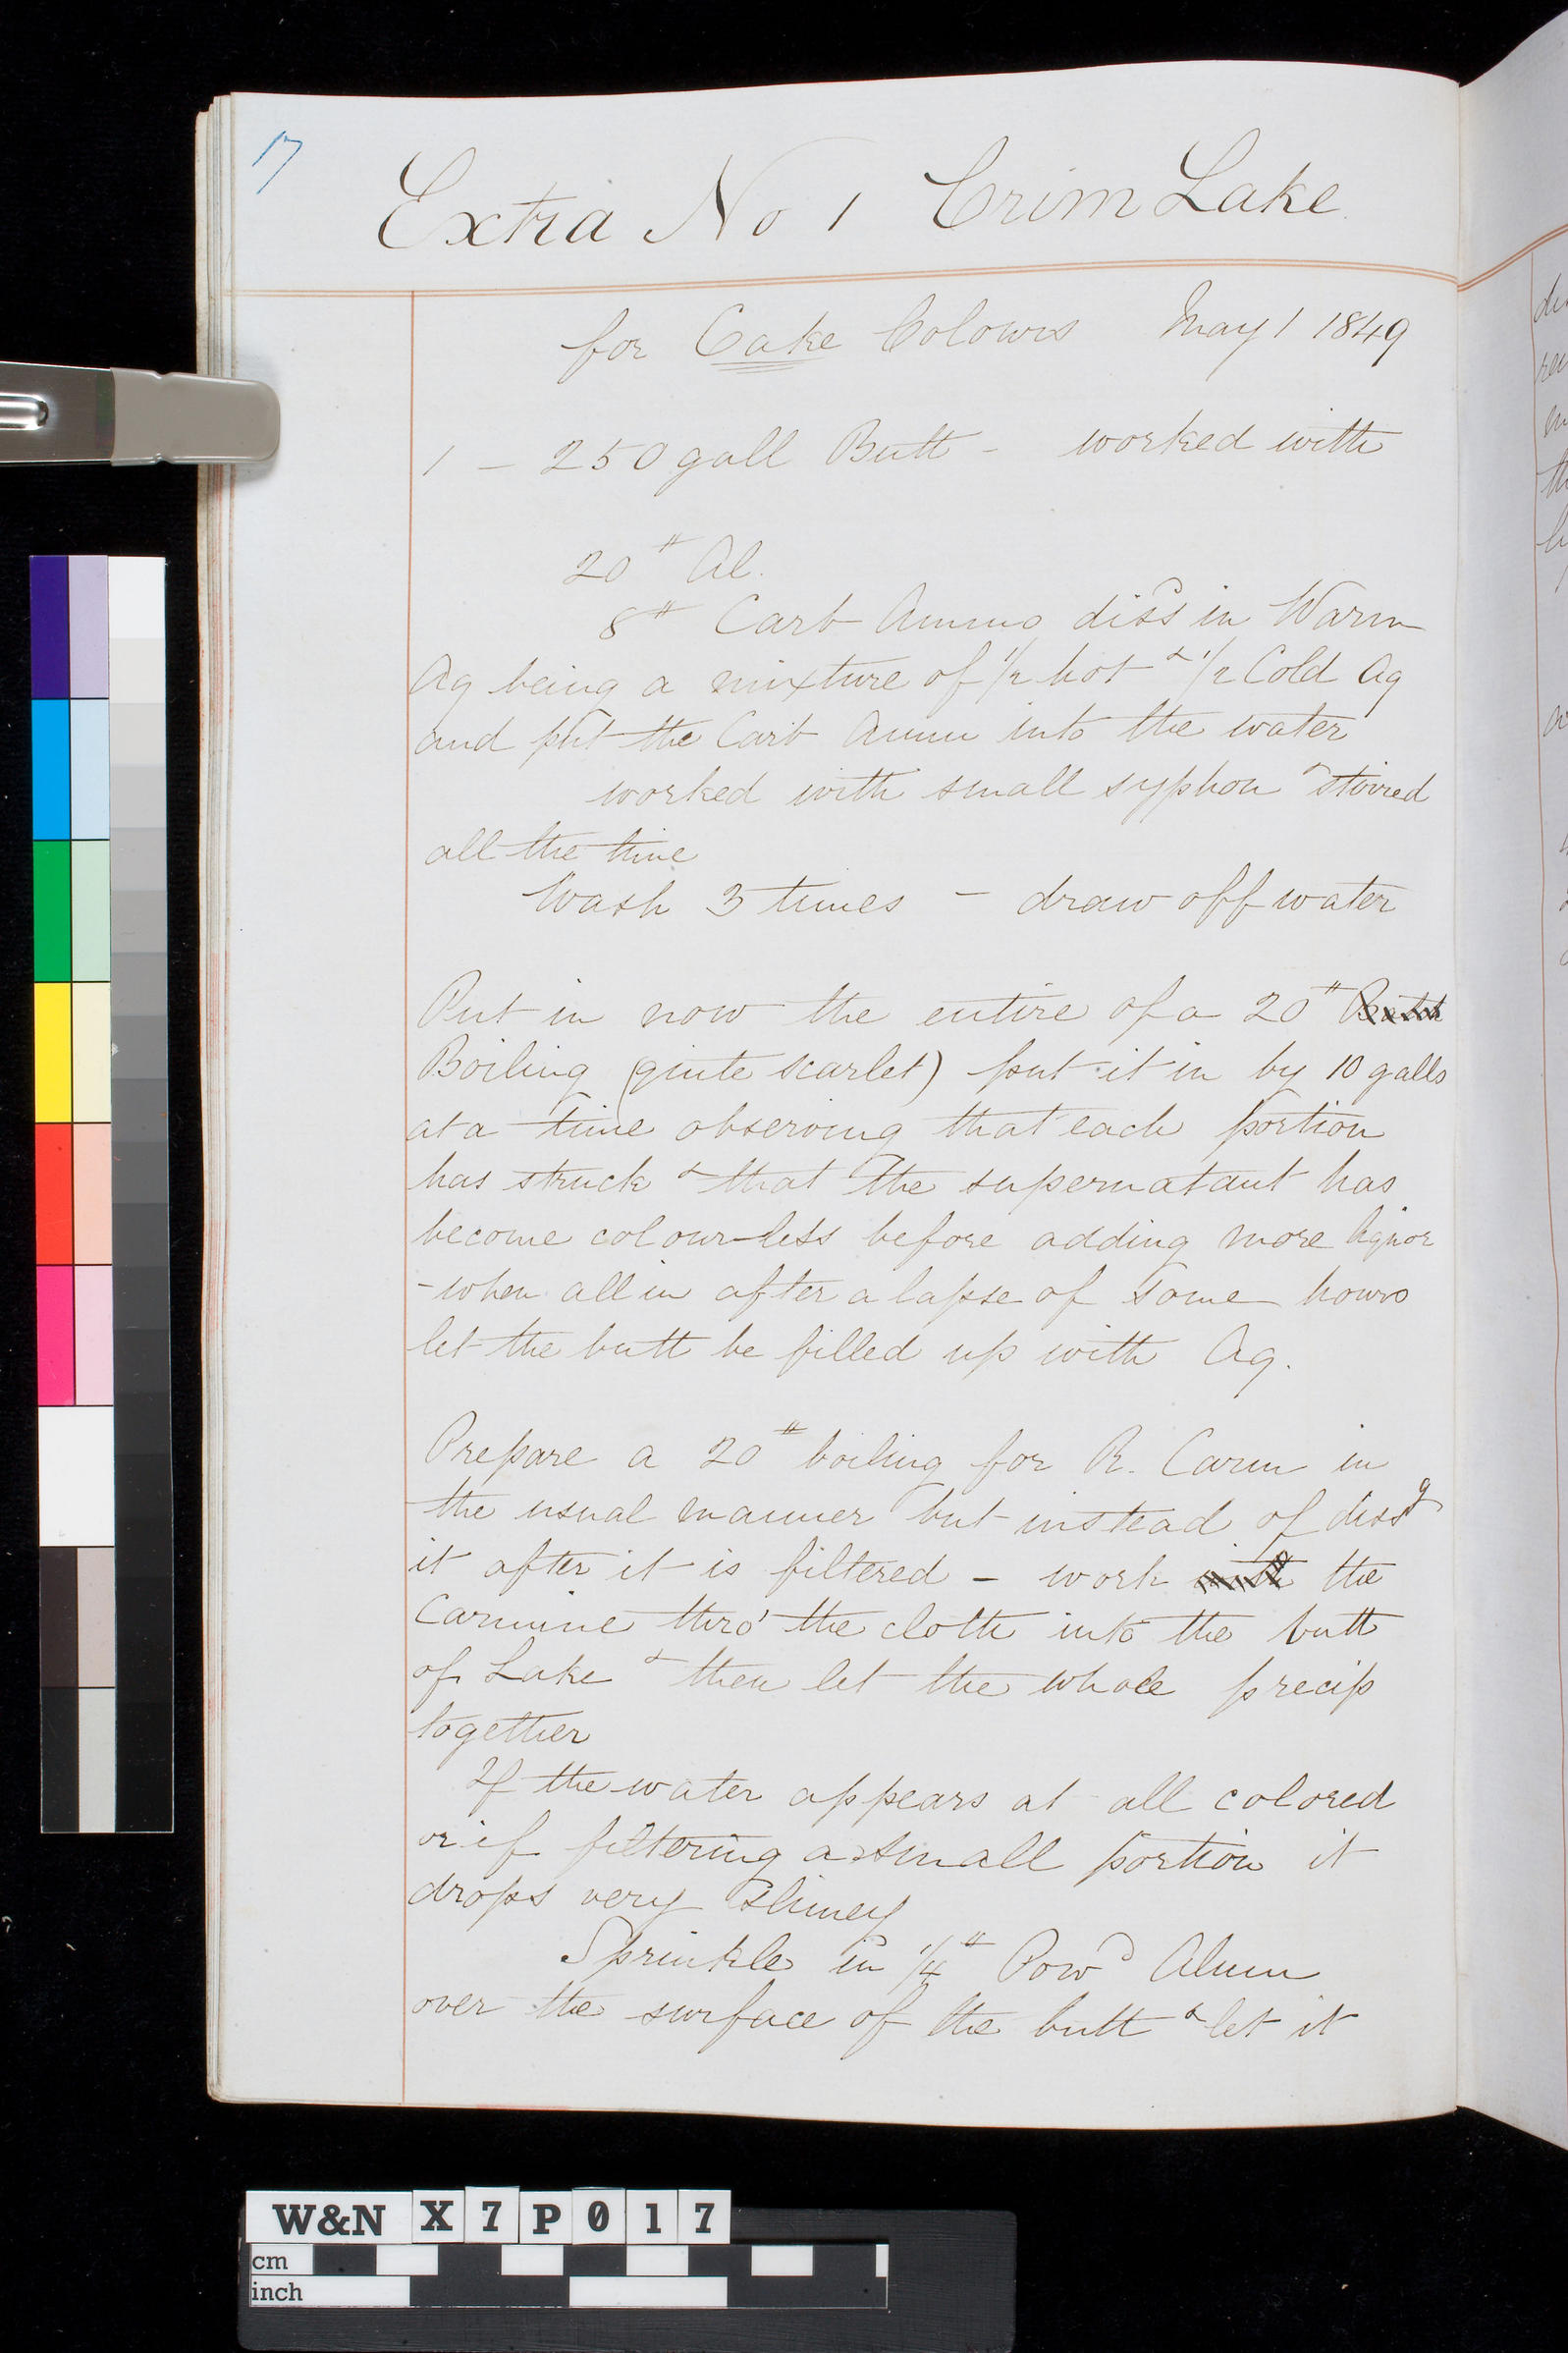 17
Extra No 1 Crim Lake
for Cake Colours May 1 1849
1 - 250 gall Butt - worked with
20# Al.
8# Carb Ammo diss'd in Warm
Aq being a mixture of 1/2 hot & 1/2 Cold Aq
and put the Carb Amm into the water
worked with small syphon & stirred
all the time
Wash 3 times - draw off water
Put in now the entire of a 20#
Boiling (quite scarlet) put it in by 10 galls
at a time observing that each portion
has struck & that the supernatant has
become colour-less before adding more liquor
- when all in after a lapse of some hours
let the butt be filled up with Aq.
Prepare a 20# boiling for R. Carm in
the usual manner but instead of dissg
it after it is filtered - work with the
Carmine thro' the cloth into the butt
of Lake & then let the whole precip
together
If the water appears at all colored
or if filtering a small portion it
drops very slimey
Sprinkle in 1/4# Powd Alum
over the surface of the butt & let it
W&N X7P017
cm
inch